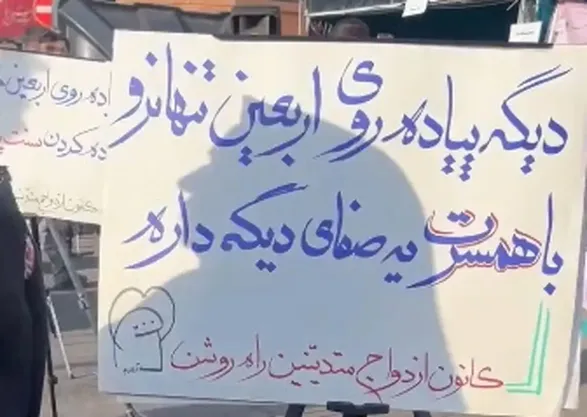 دیگه پیاده روی اربعین تنها نرو
با همسرت یه صفای دیگه داره
کانون ازدواج متدینین راه روشن
اده روی اربعین
ده کردن سنت
کانون ازدواج متدین